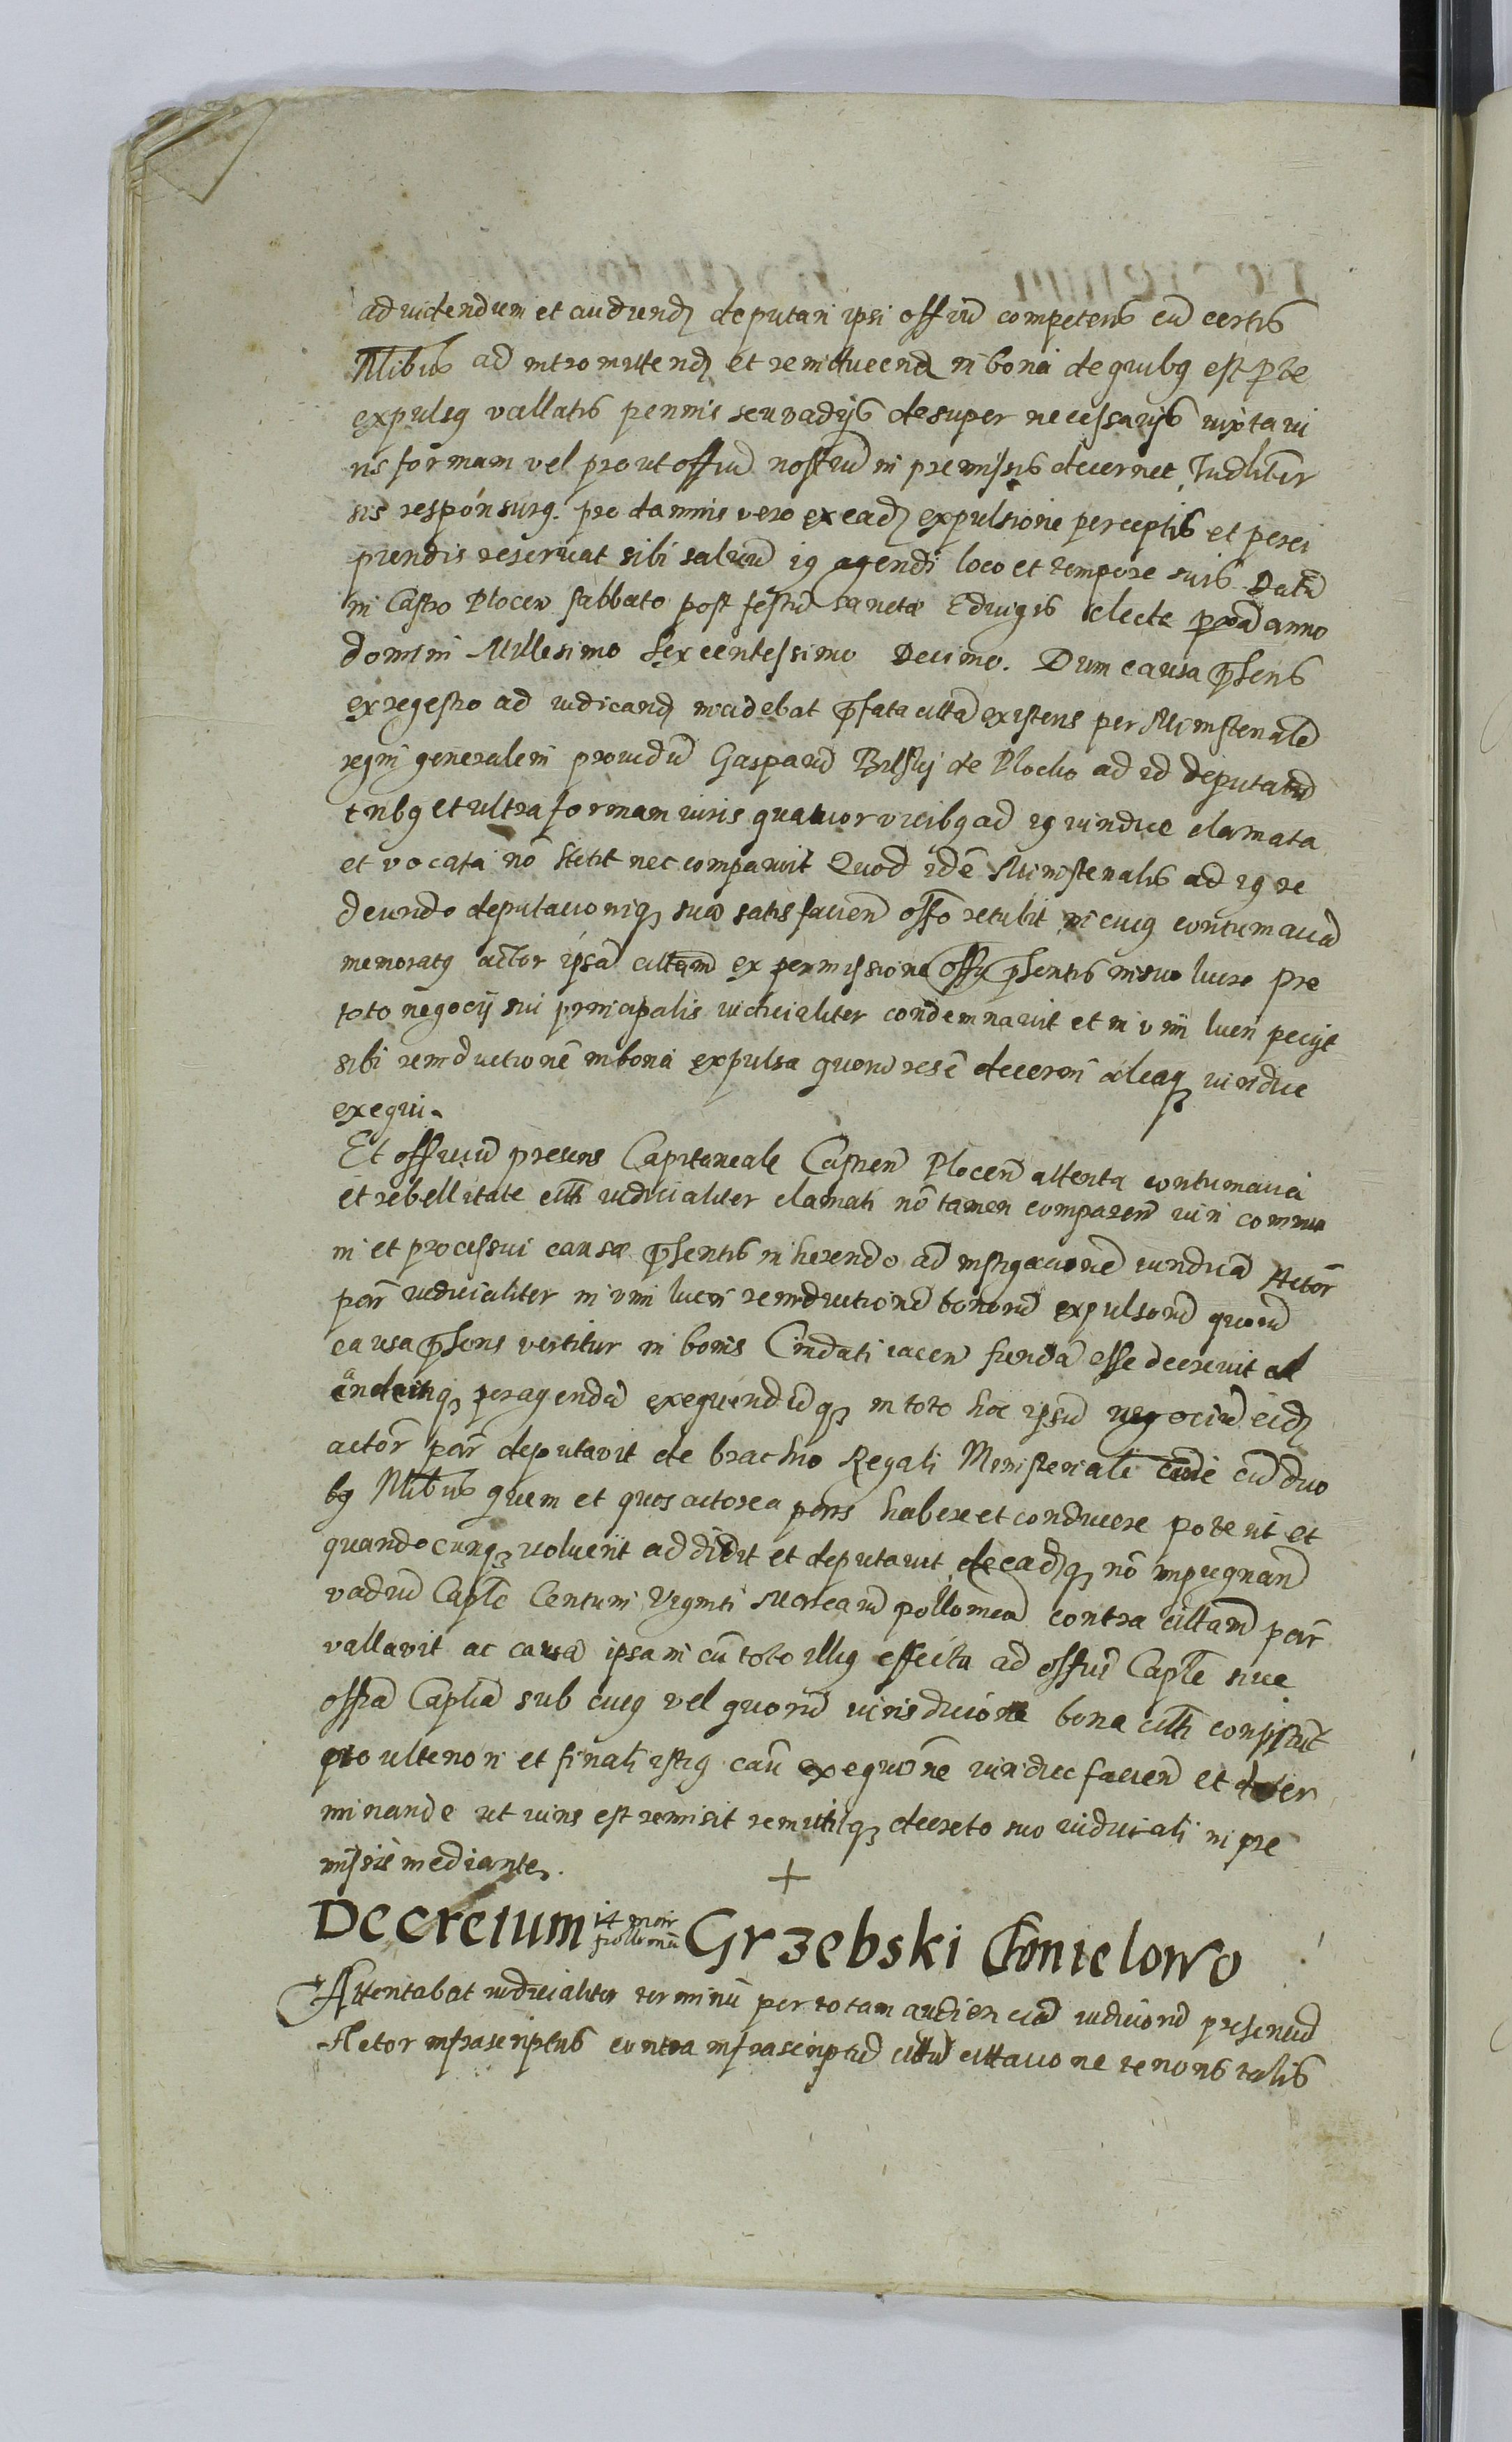 ad videndum et audiend deputari ipsi offiu competens cu certis
Nlibus ad intromittend et reinducend in bona de quibg est pte
expulsg vallatis pennis seu vadijs desuper necessarijs iuxta iu
ris formam vel prout offiu nostru in premissis decernet, Iudlitr
sis responsurg. pro damnis vero ex ead expulsione perceptis et perci
piendis reservat sibi salvu ig agendi loco et tempore suis Datu
in Castro Plocen Sabbato post festu sanctæ Edvigis electe pxa anno
domini Millesimo Sexcentessimo Decimo. Dum causa psens
ex regestro ad iudicand incidebat pfata citta existens per Ministeriale
regni generalem providu Gasparu Bilskij de Plocko ad id deputatu
tribg et ultra formam iuris quatuor vicibg ad ig iuridice clamata
et vocata nõ stetit nec comparuit Quod idẽ Ministerialis ad ig re
deundo deputationiq suæ satisfacien offo retulit in cuig contumacia
memoratg actor ipsa cittam ex permissione offii psentis in suo lucro pro
toto negocij sui principalis iudicialiter condemnavit et in vim lucri pecijt
sibi reinductionẽ in bona expulsa quoru res ẽ decerni aliaq iuridice
exequi.
Et officiu presens Capitaneale Castren Plocen attenta contumacia
et rebellitate citti iudicialiter clamati nõ tamen comparen iuri commu
ni et processui causæ psentis inherendo ad instigatione iuridica Actor
par iudicialiter in vim lucri reinductione bonoru expulsoru quoru
causa psens vertitur in bonis Cindati iacen funda esse decrevit ad
endeitiq peragenda exequendũq in toto hoc ipsu negociu eid
actor par deputavit de brachio Regali Ministeriale eunde cu duo
bg Nlibus quem et quos actorea pars habere et conducere poterit et
quandocunq voluerit addidit et deputavit de eadq nõ impugnan
vadiu Caple Centum Viginti Marcaru pollonica contra cittam par
vallavit ac causa ipsam cũ toto illig effectu ad offui Caple sive
offia Caplia sub cuig vel quoru iurisdicione bona citti consistut
pro ulteriori et finali istig cau exequione iuridice facien et deter
minande ut iuris est remisit remittitq decreto suo iudiciali in pre
missis mediante.
+
Decretum 14 mar pollonic Grzebski Chmielowo
Attentabat iudicialiter terminũ per totam audiencia iudicioru presenciu
Actor infrascriptus contra infrascriptu cittu cittatione tenoris talis